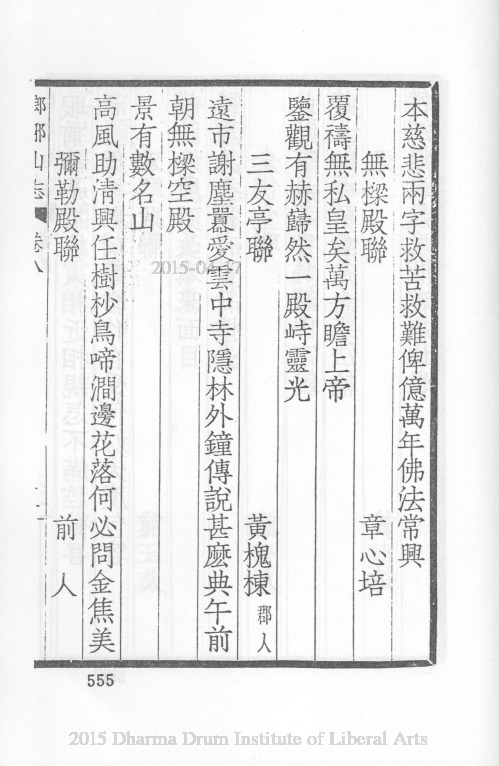 本慈悲兩字救苦救難俾億萬年佛法常興
無樑殿聯
章心培
覆禱無私皇矣萬方瞻上帝
鑒觀有赫巋然一殿峙靈光
三友亭聯
黃槐棟 郡人
遠市謝塵囂愛雲中寺隱林外鐘傳說甚麼典午前
朝無樑空殿
景有數名山
高風助淸興任樹杪鳥啼澗邊花落何必問金焦美
彌勒殿聯
前人
瑯琊山志 卷八
555
2015-04-27
2015 Dharma Drum Institute of Liberal Arts